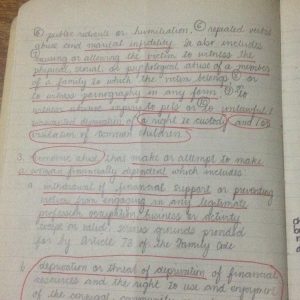 ⑤ public ridicule or humiliation, ⑥ repeated verbal
abuse and marital infidelity. It also includes
causing or allowing the victim to witness the
physical, sexual, or psychological abuse of a member
of a family to which the victim belongs or
to witness pornography in any form or to
witness abusive injury to pets or to unlawful /
unwanted deprivation of a right to custody and / or
visitation of common children.
3. economic abuse that make or attempt to make
a woman financially dependent which includes
a. withdrawal of financial support or preventing
victim from engaging in any legitimate
profession, occupation, business or activity
except on valid, serious grounds provided
for by Article 73 of the Family Code
b. deprivation or threat of deprivation of financial
resources and the right to use and enjoyment
of the conjugal